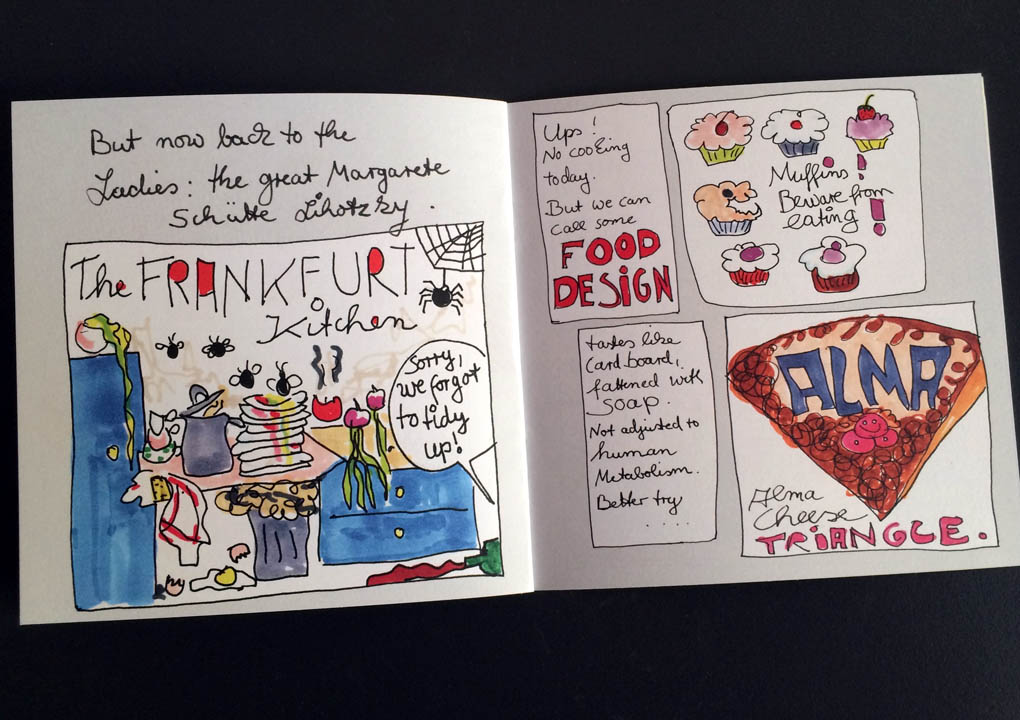 But now back to the
Ladies: the great Margarete
Schütte Lihotzky.
The FRANKFURT
Kitchen
Sorry,
we forgot
to tidy
up!
Ups!
No cooking
today.
But we can
call some
FOOD
DESiGN
Muffins!
Beware from
eating!
tastes like
Card board,
fattened with
SOAP.
Not adjusted to
human
Metabolism.
Better try
.....
ALMA
Alma
Cheese
TRiANGLE.